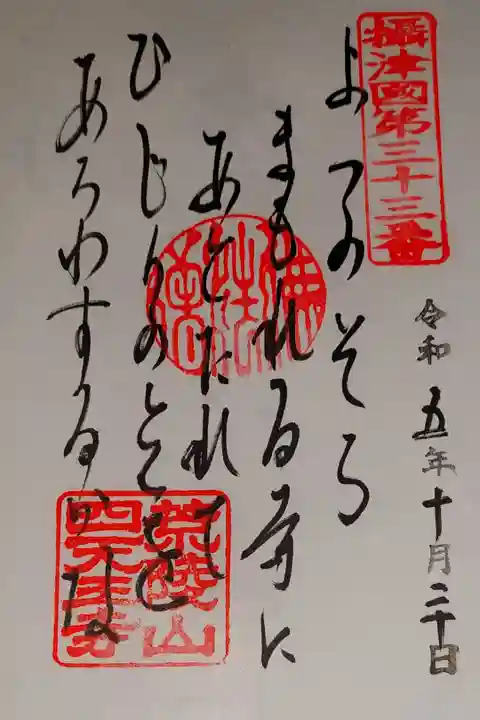 攝津國第三十三番
令和五年十月二十日
よつのそら
まもれる寺に
あとたれて
ひじりのとくを
あらわするかな
荒陵山
四天王寺